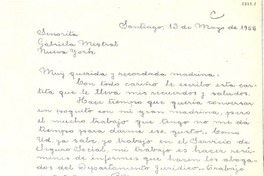 Santiago, 13 de Mayo de 1956
Señorita
Gabriela Mistral
Nueva York
Muy querida y recordada madrina:
Con todo cariño le escribo esta car-
tita que le lleva mis recuerdos y saludos.
Hace tiempo que quería conversar
un poquito con mi gran madrina, pero
el mucho trabajo que tengo no me da
tiempo para darme ese gusto. Como
Ud. ya sabe yo trabajo en el Servicio de
Seguro Social, mi trabajo es hacer resú-
menes de informes que hacen los aboga-
dos del Departamento Jurídico. Trabajo